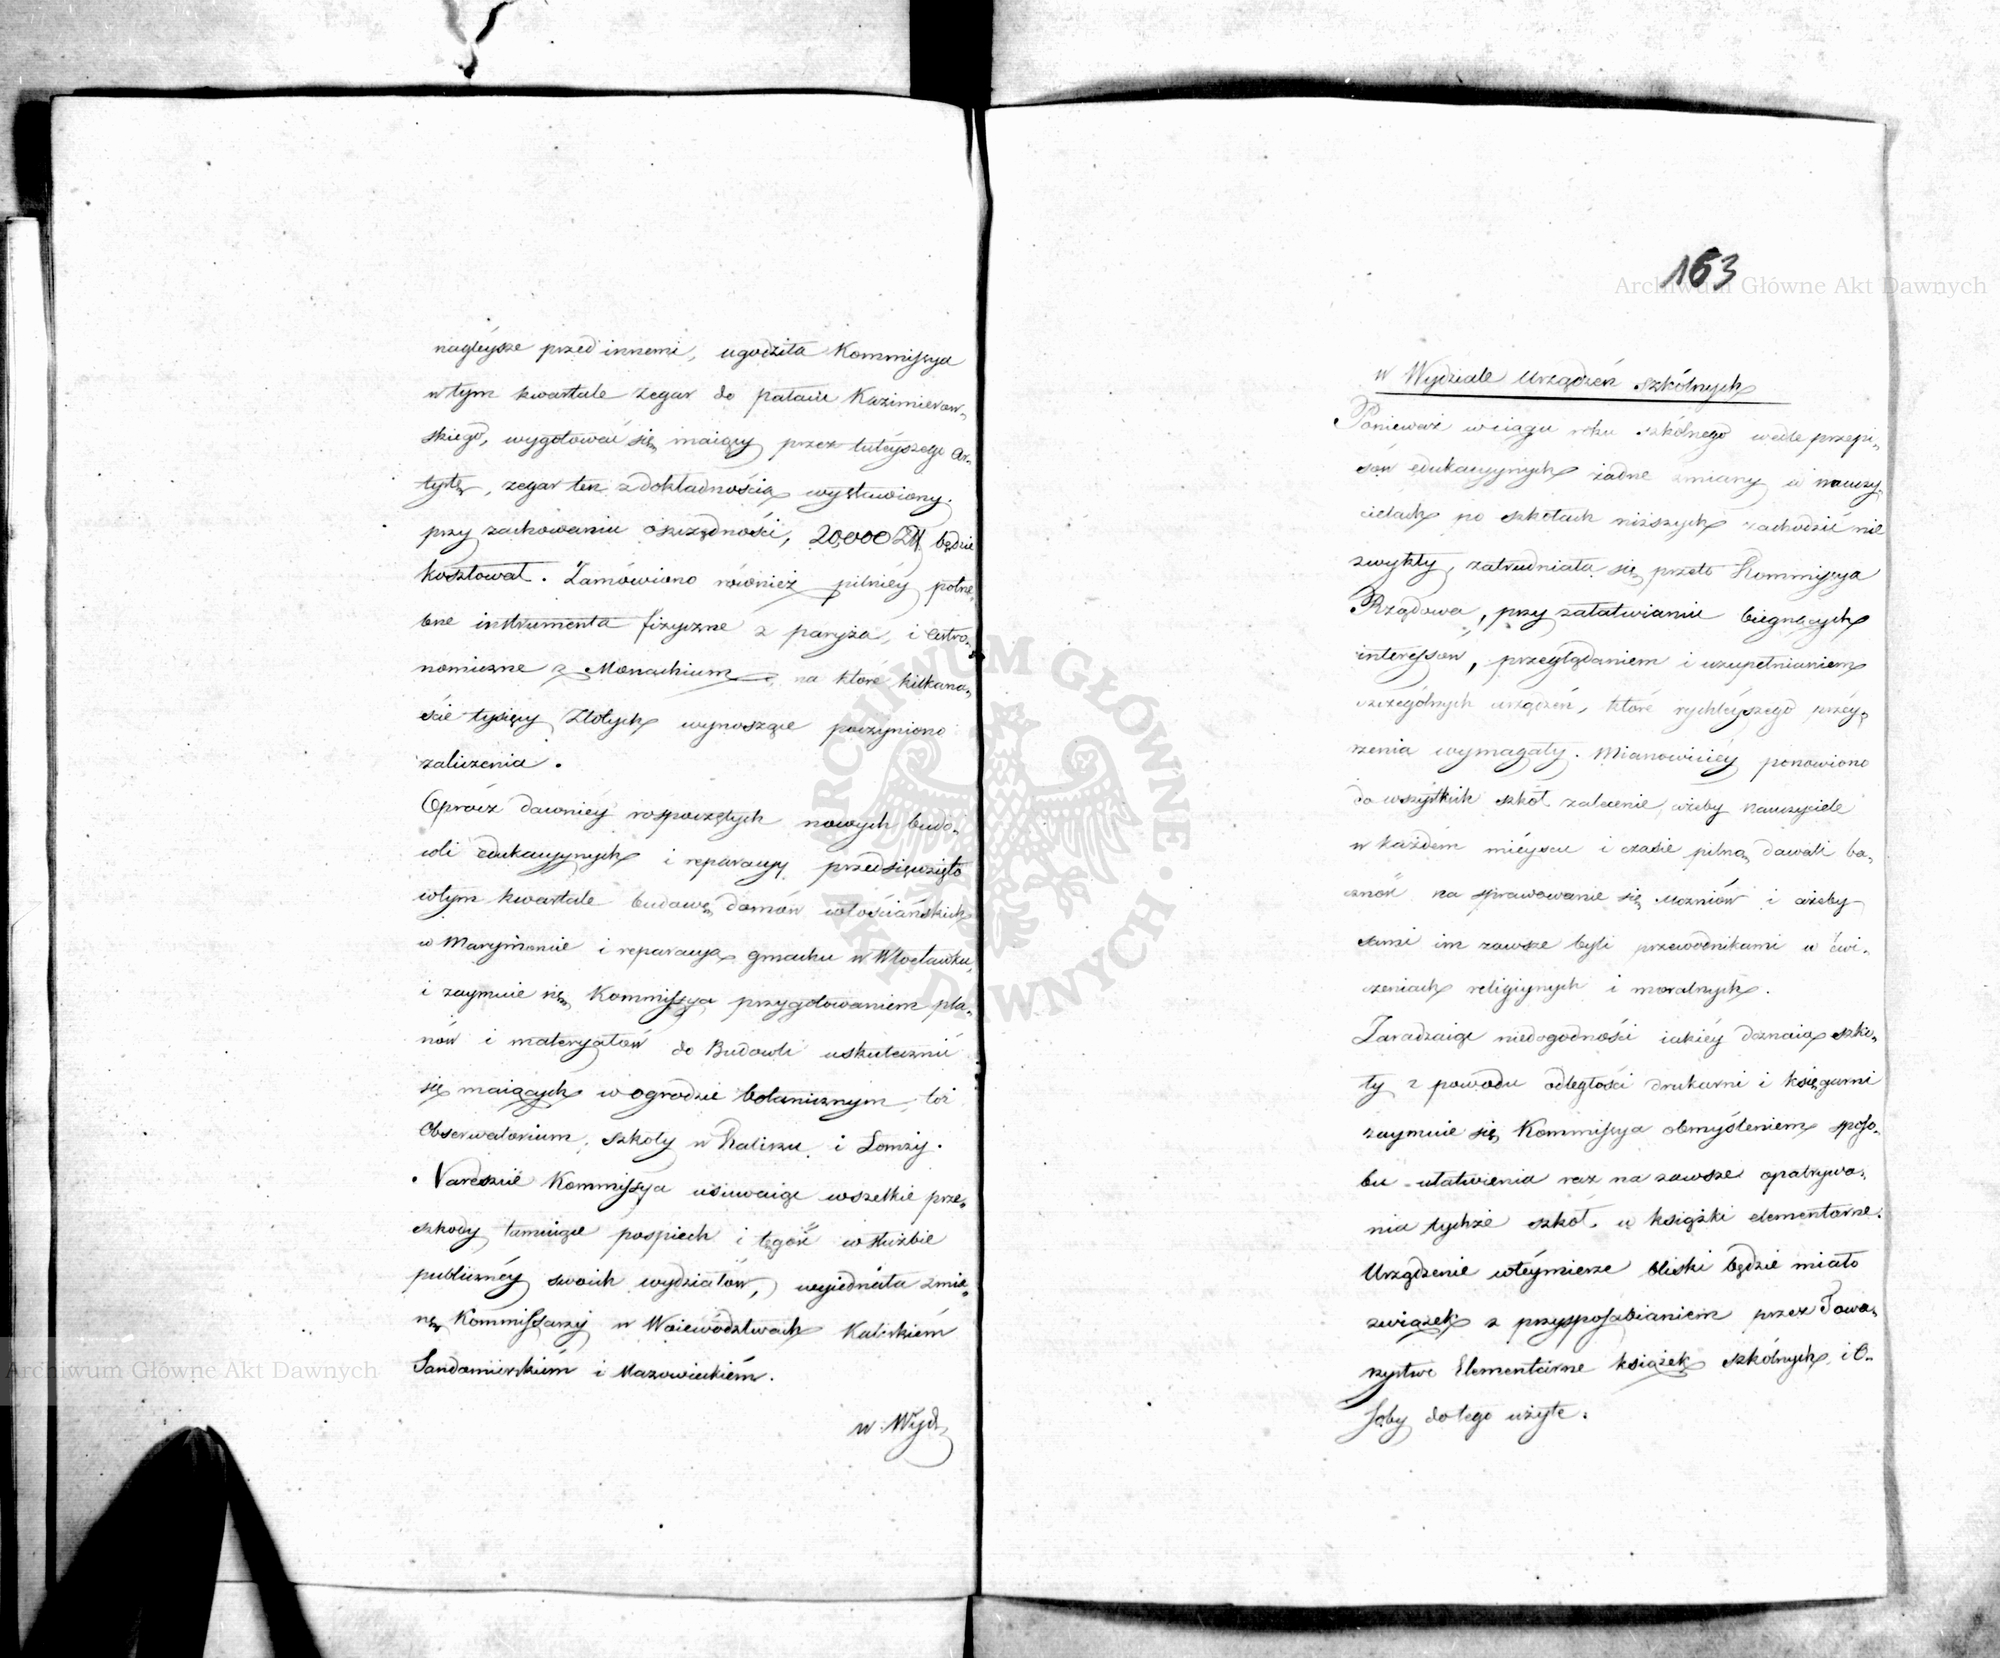 nagleysze przed innemi, ugodziła Kommissya
w tym kwartale Zegar do pałacu Kazimierow-
skiego, wygotować się maiący przez tuteyszego Ar-
tystę, zegar ten z dokładnością wystawiony
przy zachowaniu oszczędności, 20,000 Zł będzie
kosztował. Zamówiono również pilniéy potrze-
bne instrumenta fizyczne z paryża, i astro-
nomiczne z Monachium, na które kilkana-
ście tysięcy Złotych wynoszące poczyniono
zaliczenia.
Oprócz dawniéy rospoczętych nowych budo-
wli edukacyynych i reparacyy przedsięwzięto
w tym kwartale budowę domów włościańskich
w Marymoncie i reparacyą gmachu w Włocławku,
i zaymuie się Kommissya przygotowaniem pla-
nów i materyałów do Budowli uskutecznić
się maiących w ogrodzie botanicznym, toż
Obserwatorium, szkoły w Kaliszu i Łomży.
Nareszcie Kommissya usuwaiąc wszelkie prze-
szkody tamuiące pospiech i tęgość w służbie
publicznéy swoich wydziałów, wyiednała zmia-
nę Kommissarzy w Woiewództwach Kaliskiém
Sandomirskiém i Mazowieckiém.
w Wydz
163
w Wydziale Urządzeń szkólnych
Ponieważ w ciągu roku szkólnego wedle przepi-
sów edukacyynych żadne zmiany w nauczy-
cielach po szkołach niższych zachodzić nie
zwykły, zatrudniała się przeto Kommissya
Rządowa, przy załatwianiu biegnących
interessow, przeglądaniem i uzupełnianiem
szczególnych urządzeń, które rychleyszego przéy-
rzenia wymagały. Mianowiciéy ponowiono
do wszystkich szkół zalecenie, ażeby nauczyciele
w każdém mieyscu i czasie pilną dawali ba-
czność na sprawowanie się uczniów i ażeby
sami im zawsze byli przewodnikami w ćwi-
czeniach religiynych i moralnych.
Zaradzaiąc niedogodności iakiéy doznaią szko-
ły z powodu odległości drukarni i księgarni
zaymuie się Kommissya obmyśleniem sposo-
bu ułatwienia raz na zawsze opatrywa-
nia tychże szkół w książki elementarne.
Urządzenie w téymierze bliski będzie miało
związek z przysposabianiem przez Towa-
rzystwo Elementarne książek szkólnych i O-
soby do tego użyte.
Archiwum Główne Akt Dawnych
Archiwum Główne Akt Dawnych
ARCHIWUM GŁÓWNE AKT DAWNYCH